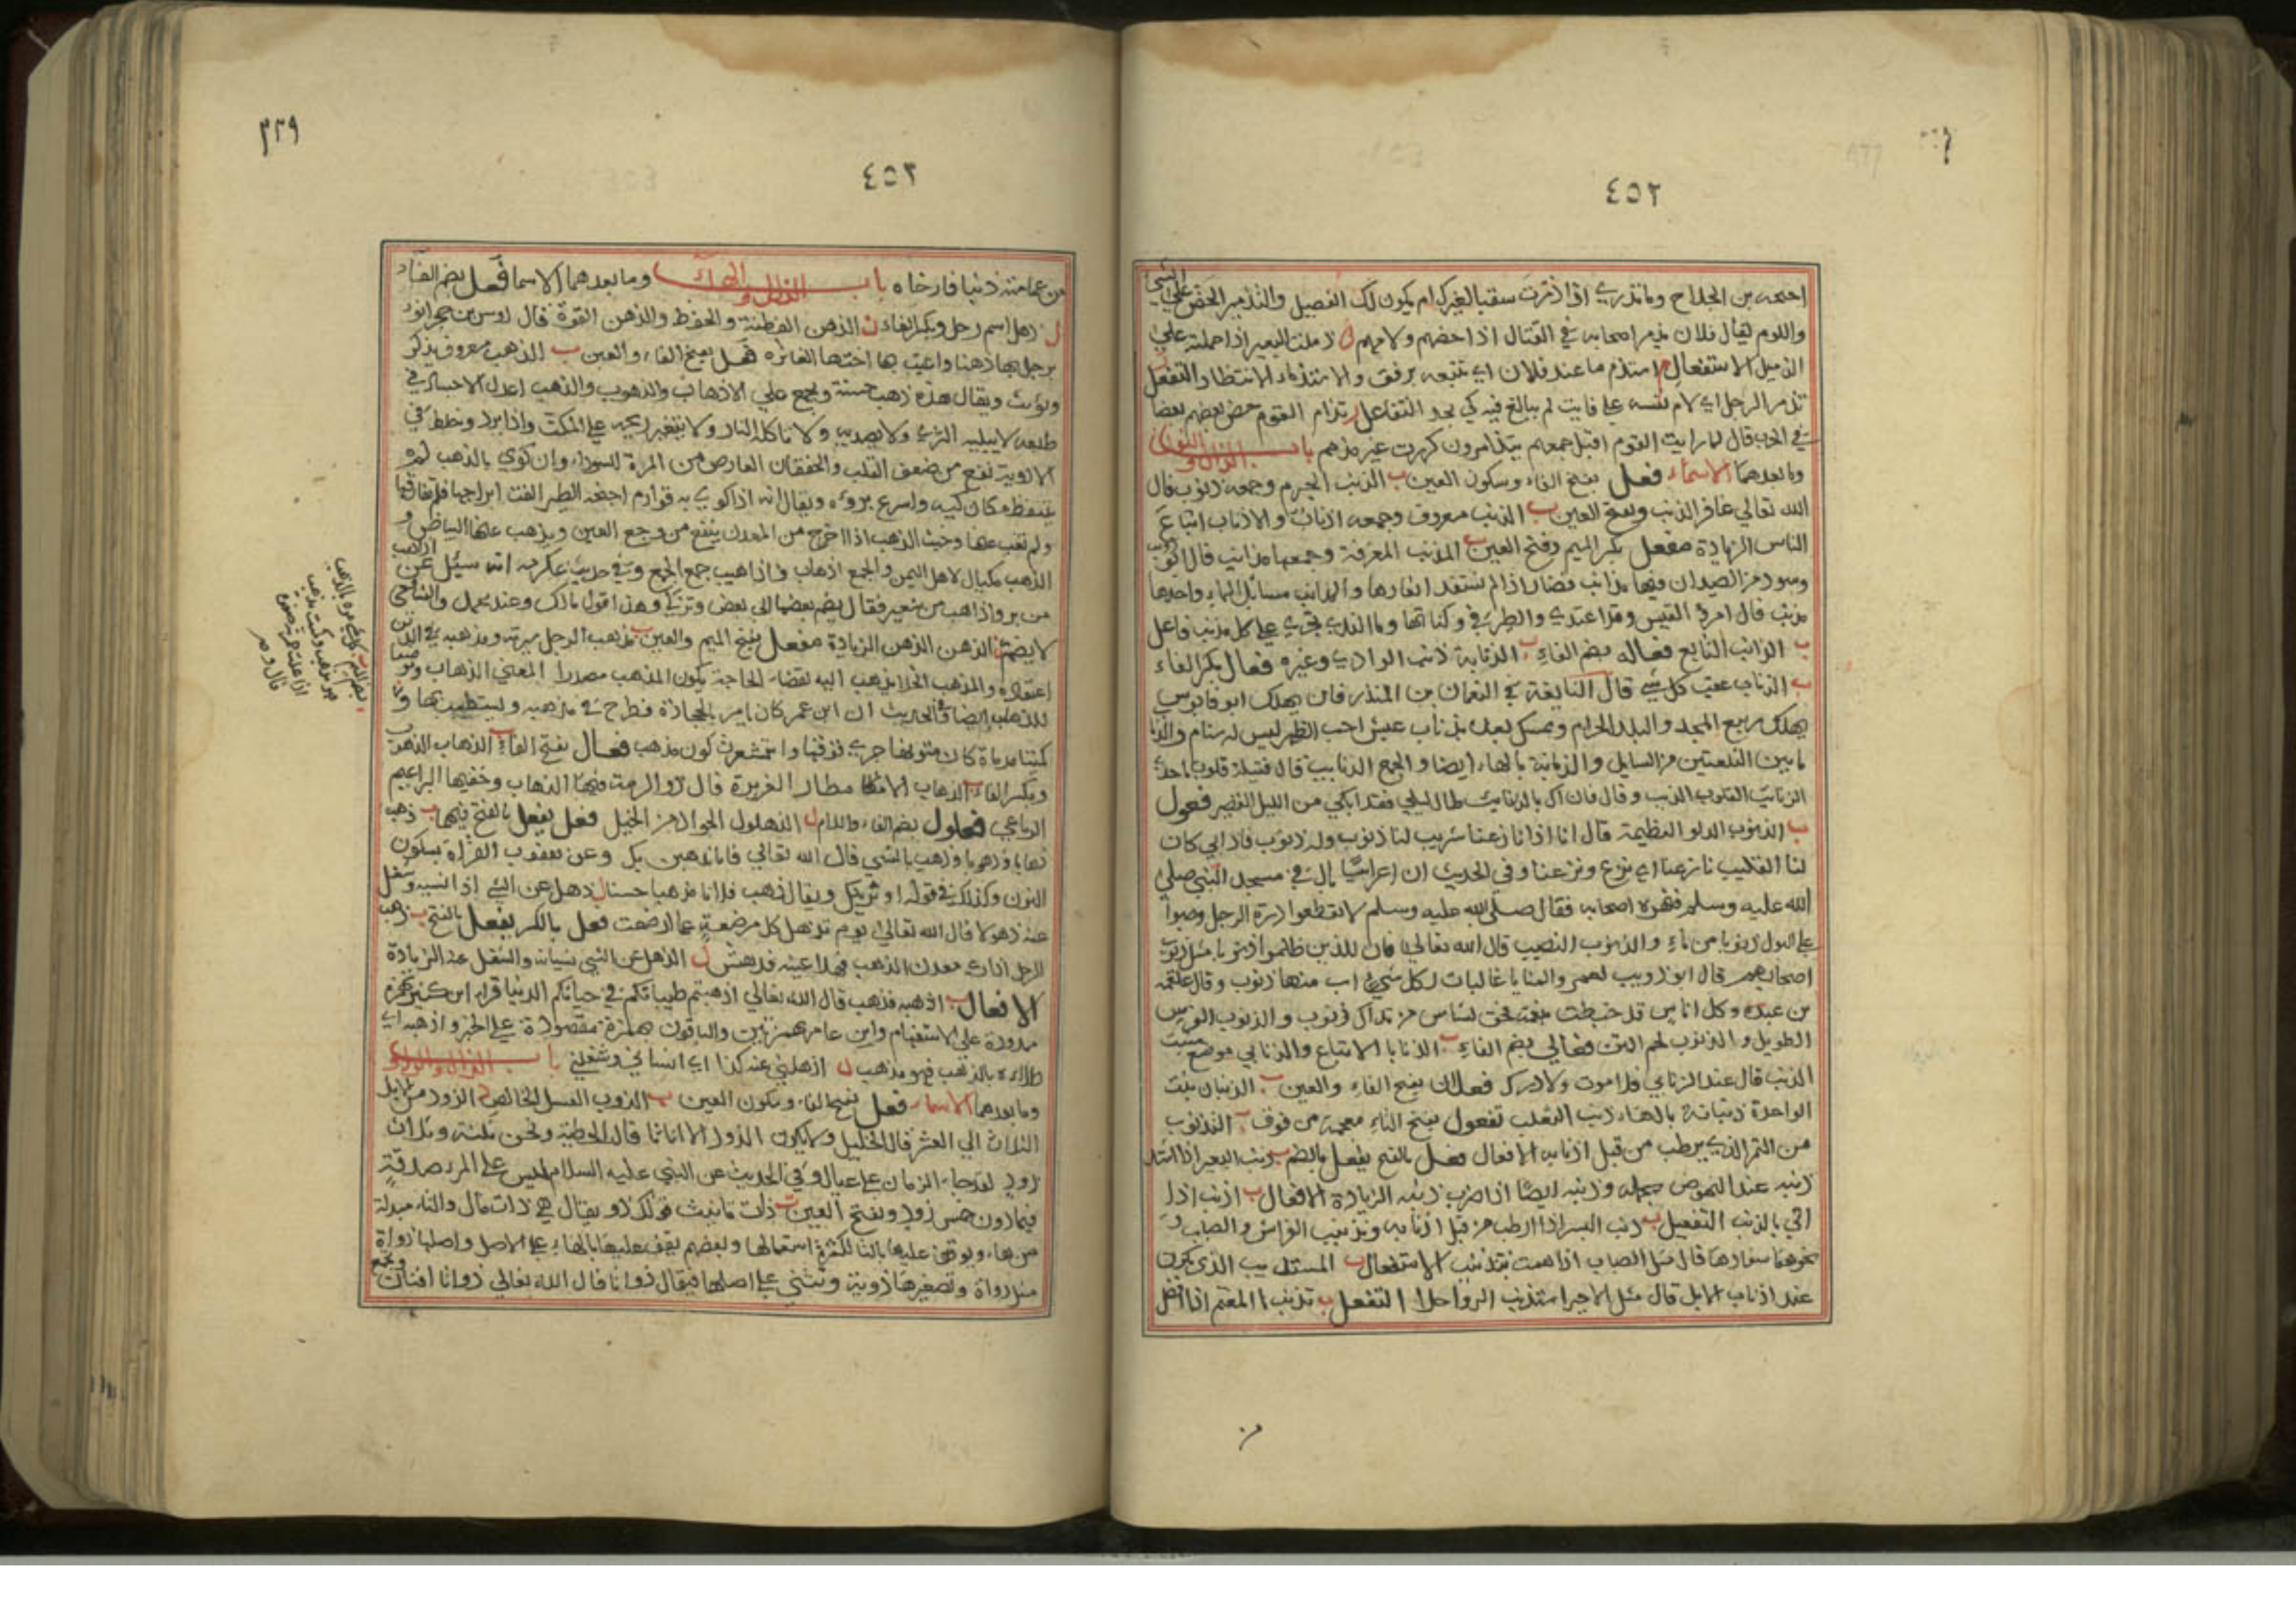 ٤٥٢
احيحه بن الجلاح وما تدري اذا ذمرت سقبا لغيرك ام يكون لك الفصيل والتذمير الحض على الشي
واللوم يقال فلان يذمر اصحابه في القتال اذا حضهم ولامهم ل ذملت البعير اذا حملته علي
الذميل الاستفعال م استذم ما عند فلان اي تتبعه برفق والاستذمام الانتظار التفعل
تذمر الرجل اي لام نفسه على فايت لم يبالغ فيه كي يجد التفاعل ر تذامر القوم حض بعضهم بعضا
في الحرب قال لما رايت القوم اقبل جمعهم يتذامرون كررت غير مذمم باب الذال والنون
وما بعدهما الاسماء فعل بفتح الفاء وسكون العين ب الذنب الجرم وجمعه ذنوب قال
الله تعالي غافر الذنب وبفتح العين ب الذنب معروف وجمعه اذناب والاذناب اتباع
الناس الزيادة مفعل بكسر الميم وفتح العين ب المذنب المغرفة وجمعها مذانب قال ابو ذويب
وسود من الصيدان فيها مذانب نضار اذا لم نستفدها نعارها والمذانب مسائل الماء واحدها
مذنب قال امرؤ القيس وقد اغتدي والطير في وكناتها وماء الندي يجري على كل مذنب فاعل
ب الذانب التابع فعاله بضم الفاء ب الذنابة ذنب الوادي وغيره فعال بكسر الفاء
ب الذناب عقب كل شي قال النابغة في النعمان بن المنذر فان يهلك ابو قابوس
يهلك ربيع المجد والبلد الحرام ونمسك بعده بذناب عيش اجب الظهر ليس له سنام والذناب
ما بين التلعتين من السايل والذنابة بالهاء ايضا والجمع الذنايب
الذنايب القلوب الذيب وقال فان اك بالذنايب طال ليلي فقد ابكي من الليل القصير فعول
ب الذنوب الدلو العظيمة قال انا اذا نازعنا شريب لنا ذنوب وله ذنوب فان ابي كان
لنا القليب نازعنا اي نزع ونزعنا وفي الحديث ان اعرابيا بال في مسجد النبي صلى
الله عليه وسلم فنهره اصحابه فقال صلى الله عليه وسلم لا تقطعوا درة الرجل وصبوا
على البول ذنوبا من ماء والذنوب النصيب قال الله تعالي فان للذين ظلموا ذنوبا مثل ذنوب
اصحابهم قال ابو ذويب لعمر والمنايا غالبات لكل بني اب منها ذنوب وقال علقمه
بن عبده وكل اناس قد خبطت بنعمة فحق لشاس من نداك ذنوب والذنوب الفرس
الطويل والذنوب لحم المتن فعالي بضم الفاء ب الذنابا الاتباع والذنابي موضع منبت
الذنب قال عند الذنابي فلا موت ولا درك فعلان بفتح الفاء والعين ب الذنبان نبت
الواحدة ذنبانة بالهاء ذنب الثعلب تفعول بفتح التاء معجمة من فوق ب التذنوب
من التمر الذي يرطب من قبل اذنابه الافعال فعل بالفتح يفعل بالضم ب ذنب البعير اذا
ذنبه عند النهوض بحمله وذنبه ايضا اذا ضرب ذنبه الزيادة الافعال ب اذنب اذا
اتي بالذنب التفعيل ب ذنب البسر اذا ارطب من قبل اذنابه وتذنيب الفراش والضباب
نحوهما سفادها قال مثل الضباب اذا همت بتذنيب الاستفعال ب المستذنب الذي يكون
عند اذناب الابل قال مثل الاجير استذنب الرواحلا التفعل ب تذنب المعتم اذا افضل
من
٣٢٩
٤٥٢
من عمامته ذنبا فارخاه باب الذال والهاء وما بعدهما الاسما فعل بضم الفاء
ل ذهل اسم رجل وبكسر الفاء ن الذهن الفطنة والحفظ والذهن القوة قال اوس بن حجر انوء
برجل بها ذهنها واعيت بها اختها الغابره فعل بفتح الفاء والعين ب الذهب معروف يذكر
ويؤنث ويقال هذه ذهب حسنة ويجمع على الاذهاب والذهوب والذهب اعدل الاجساد في
طبعه لا يبليه الثري ولا يصديه ولا تاكله النار ولا يتغير ريحه على المكث واذا برد وخلط في
الادوية نفع من ضعف القلب والخفقان العارض من المرة السوداء وان كوي بالذهب لم
يتنفط مكان كيه واسرع بروءه ويقال انه اذا كوي به قوادم اجنحة الطير الفت ابراجها فلم تفارقها
ولم تغب عنها وخبث الذهب اذا اخرج من المعدن ينفع من وجع العين ويذهب عنها البياض و
الذهب مكيال لاهل اليمن والجمع اذهاب واذاهيب جمع الجمع وفي حديث عكرمه انه سئل عن اذاهب
من بر واذاهب من شعير فقال يضم بعضها الى بعض وتزكي وهذا قول مالك وعند محمد والشافعي
لا يضم ن الذهن الذهن الزيادة مفعل بفتح الميم والعين ب مذهب الرجل سيرته ومذهبه في الدين
اعتقاده والمذهب الخلا يذهب اليه لقضاء الحاجة يكون المذهب مصدرا لمعني الذهاب وموضعا
للذهاب ايضا وفي الحديث ان ابن عمر كان يامر بالحجارة فتطرح في مذهبه وليستطيب بها و
كميتا مدماة كان متونها جري فوقها واستشعرت لون مذهب فعال بفتح الفاء ب الذهاب الذهوب
وبكسر الفاء ب الذهاب الامطار الغزيرة قال ذو الرمة فيها الذهاب وحفتها البراعيم
الرباعي فعلول بضم الفاء واللام ل الذهلول الجواد من الخيل فعل يفعل بالفتح فيهما ب ذهب
ذهابا وذهوبا وذهب بالشي قال الله تعالي فاما نذهبن بك وعن يعقوب القراة بسكون
النون وكذلك في قوله او نرينك ويقال ذهب فلان مذهبا حسنا ل ذهل عن الشي اذا نسيه وشغل
عنه ذهولا قال الله تعالي يوم تذهل كل مرضعة عما ارضعت فعل بالكسر يفعل بالفتح ب ذهب
الرجل اذا راي معدن الذهب فملا عينه فدهش ل الذهل عن الشي نسيانه والشغل عنه الزيادة
الافعال ب اذهبه فذهب قال الله تعالي اذهبتم طيباتكم في حياتكم الدنيا قراه ابن كثير بهمزة
ممدودة على الاستفهام وابن عامر بهمزتين والباقون بهمزة مقصورة على الخبر واذهبه اي
طلاه بالذهب فهو مذهب ل اذهلني عنه كذا اي انساني وشغلني باب الذال والواو
وما بعدهما الاسماء فعل بفتح الفاء وسكون العين ب الذوب العسل الخالص د الذود من الابل
الثلاث الي العشر قال الخليل ولا يكون الذود الا اناثا قال الحطيئة ونحن ثلثة وثلاث
ذود لقد جار الزمان على عيالي وفي الحديث عن النبي عليه السلام ليس على المرء صدقة
فيما دون خمس ذود وبفتح العين ت ذات تانيث قولك ذو يقال هي ذات مال والتاء مبدلة
من هاء ويوقف عليها بالتا لكثرة استعمالها وبعضهم يقف عليها بالهاء على الاصل واصلها ذواة
مثل دواة وتصغيرها ذوية وتثني على اصلها فيقال ذواتا قال الله تعالي ذواتا افنان وتجمع